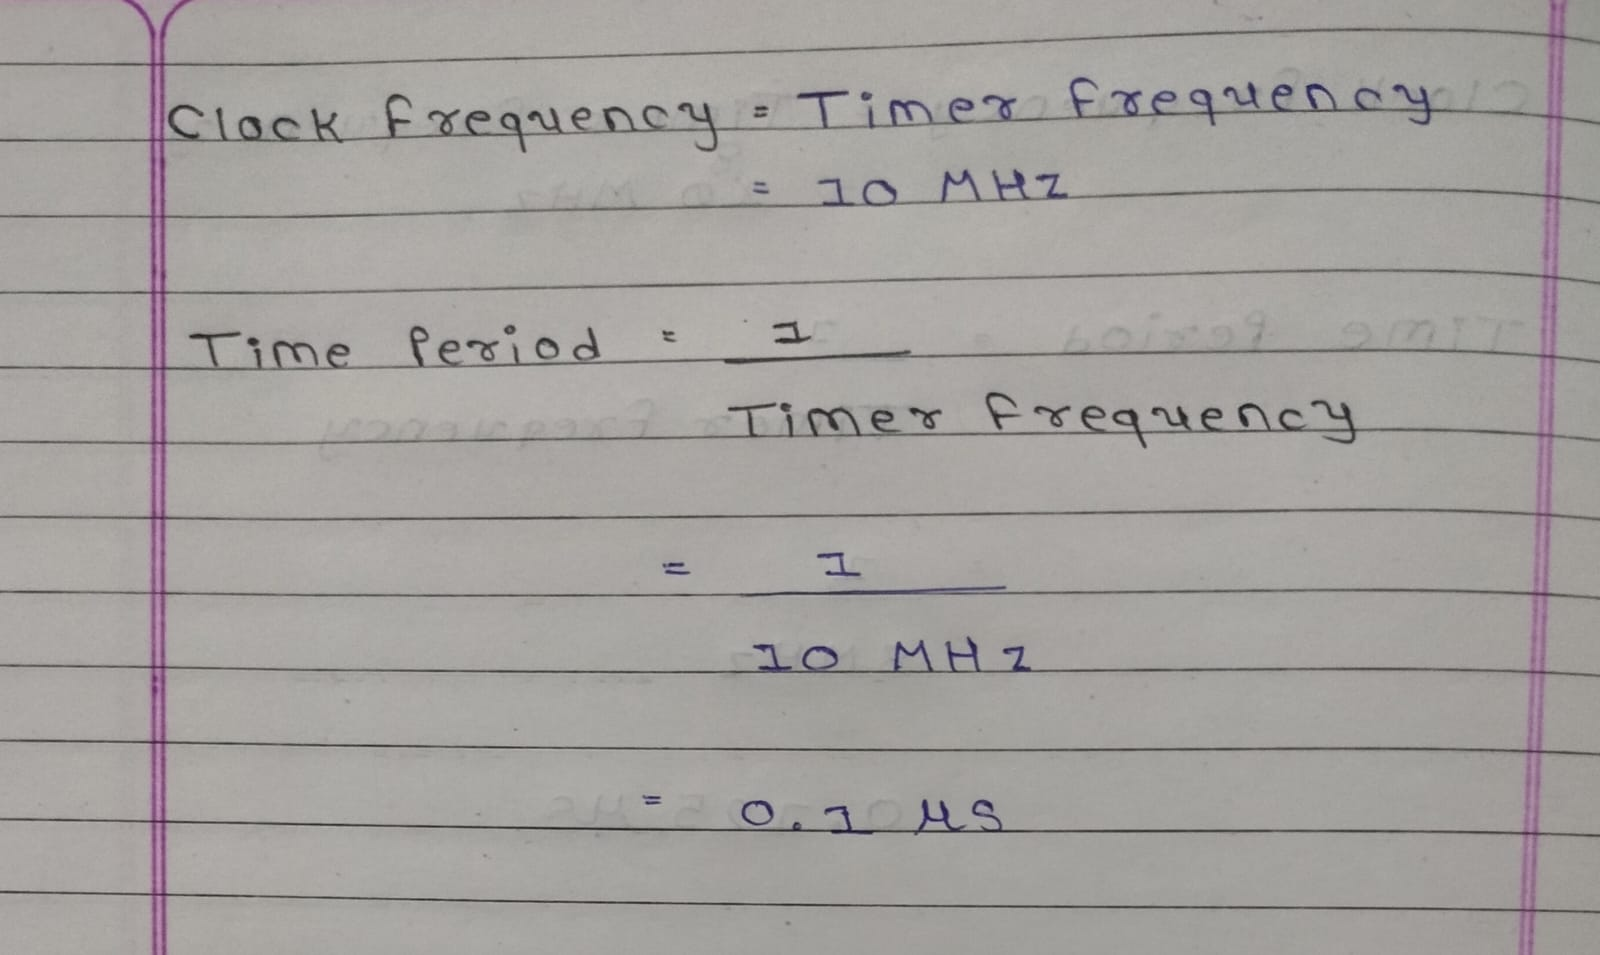 Clock frequency = Timer frequency
= 10 MHz
Time Period = 1
Timer frequency
= 1
10 MHz
= 0.1 μs